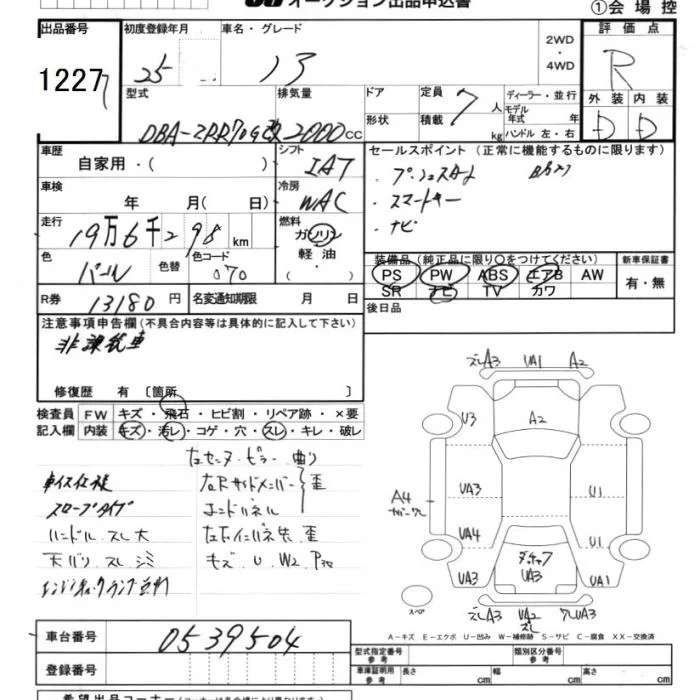 オークション出品申込書
①会場控
出品番号 初度登録年月 車名・グレード 2WD・4WD 評価点
1227 25 13 R
型式 排気量 ドア 定員 7人 ディーラー・並行 外装 内装
DBA-ZRR70G改 2000cc 形状 積載 kg モデル年式 年式 ハンドル 左・右 D D
車歴 自家用・( ) シフト IAT セールスポイント (正常に機能するものに限ります)
・プッシュスタート
車検 年 月( 日) 冷房 WAC ・スマートキー
・ナビ
走行 19万6千298km 燃料 ガソリン・軽油・( )
装備品 (純正品に限り〇をつけてください) 新車保証書
色 パール 色替 色コード 070 PS PW ABS エアB AW 有・無
SR ナビ TV カワ
R券 13180円 名変通知期限 月 日 後日品
注意事項申告欄 (不具合内容等は具体的に記入して下さい)
非課税車
修復歴 有 〔箇所 〕
検査員記入欄 FW キズ・飛石・ヒビ割・リペア跡・×要
内装 キズ・汚レ・コゲ・穴・スレ・キレ・破レ
左センターピラー 曲り
車イス仕様 左右Rサイドメンバー 歪
スロープタイプ エンドパネル
ハンドル スレ大 左右インパネ先 歪
天バリ スレ シミ キズ U W2 P
エンジンチェックランプ点灯
スレA3 UA1 A2
U3 A2
UA3 U1
A4
UA4 U1
UA3 UA3 UA1
スペア スレA3 UA2 スレ UA3
A-キズ E-エクボ U-凹み W-補修跡 S-サビ C-腐食 XX-交換済
車台番号 0539504 型式指定番号 参考 類別区分番号 参考
登録番号 車庫証明用 参考 長さ cm 幅 cm 高さ cm
希望出品コーナー